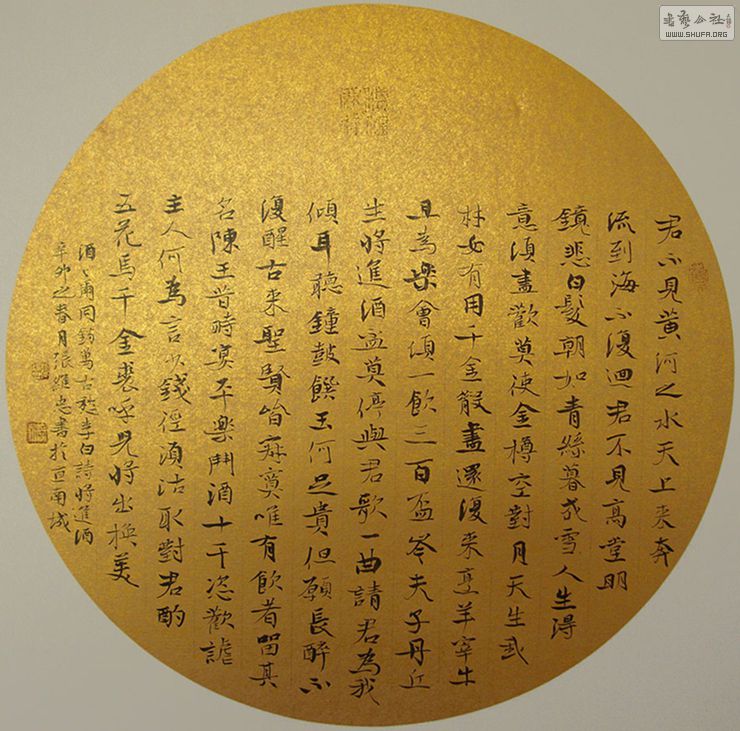 君不見黃河之水天上來奔
流到海不復迴君不見高堂明
鏡悲白髮朝如青絲暮成雪人生得
意須盡歡莫使金樽空對月天生我
材必有用千金散盡還復來烹羊宰牛
且為樂會須一飲三百盃岑夫子丹丘
生將進酒盃莫停與君歌一曲請君為我
傾耳聽鐘鼓饌玉何足貴但願長醉不
復醒古來聖賢皆寂寞唯有飲者留其
名陳王昔時宴平樂鬥酒十千恣歡謔
主人何為言少錢徑須沽取對君酌
五花馬千金裘呼兒將出換美
酒爾同銷萬古愁李白詩將進酒
辛卯之春月張維忠書於南城
書藝公社
WWW.SHUFA.ORG